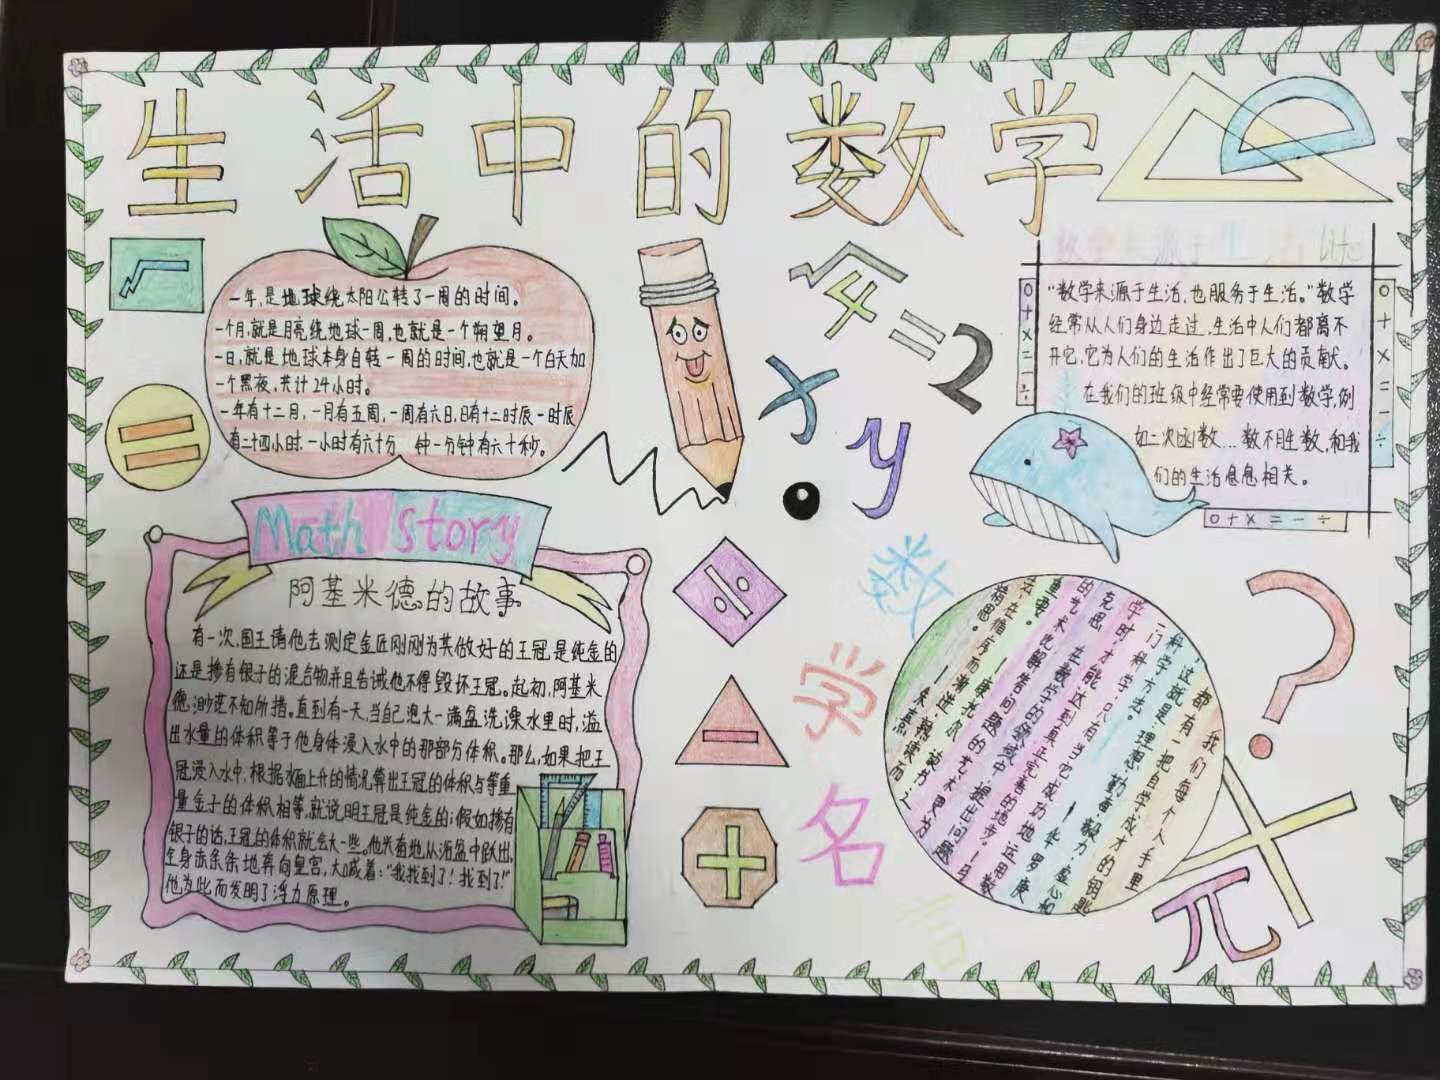 生活中的数学
一年,是地球绕太阳公转了一周的时间。
一个月,就是月亮绕地球一周,也就是一个朔望月。
一日,就是地球本身自转一周的时间,也就是一个白天加
一个黑夜,共计24小时。
一年有十二月,一月有五周,一周有六日,日有十二时辰一时辰
有二十四小时,一小时有六十分 钟一分钟有六十秒。
√4=2
x
y
数学来源于生活 life
“数学来源于生活,也服务于生活。”数学
经常从人们身边走过,生活中人们都离不
开它,它为人们的生活作出了巨大的贡献。
在我们的班级中经常要使用到数学,例
如二次函数...数不胜数,和我
们的生活息息相关。
0+×=-÷
0+×=-÷
0+×=-÷
Math Story
阿基米德的故事
有一次,国王请他去测定金匠刚刚为其做好的王冠是纯金的
还是掺有银子的混合物并且告诫他不得毁坏王冠。起初,阿基米
德,渺茫不知所措。直到有一天,当自己泡大一满盆洗澡水里时,溢
出水量的体积等于他身体浸入水中的那部分体积。那么,如果把王
冠浸入水中,根据水面上升的情况算出王冠的体积与等重
量金子的体积相等,就说明王冠是纯金的;假如掺有
银子的话,王冠的体积就会大一些。他兴奋地从浴盆中跃出,
全身赤条条地奔向皇宫,大喊着:“我找到了!找到了!”
他为此而发明了浮力原理。
÷
-
+
数
学
名
言
我们每个人手里
都有一把自学成才的钥匙
,这就是:理想,勤奋,毅力,虚心和
科学方法。 —华罗庚
一门科学,只有当它成功地运用数
学时,才能达到真正完善的地步。—马
克思
在数学的领域中,提出问题
的艺术比解答问题的艺术更为
重要。 —康托尔
读书之
法,在循序而渐进,熟读而
精思。 —朱熹
?
×
π